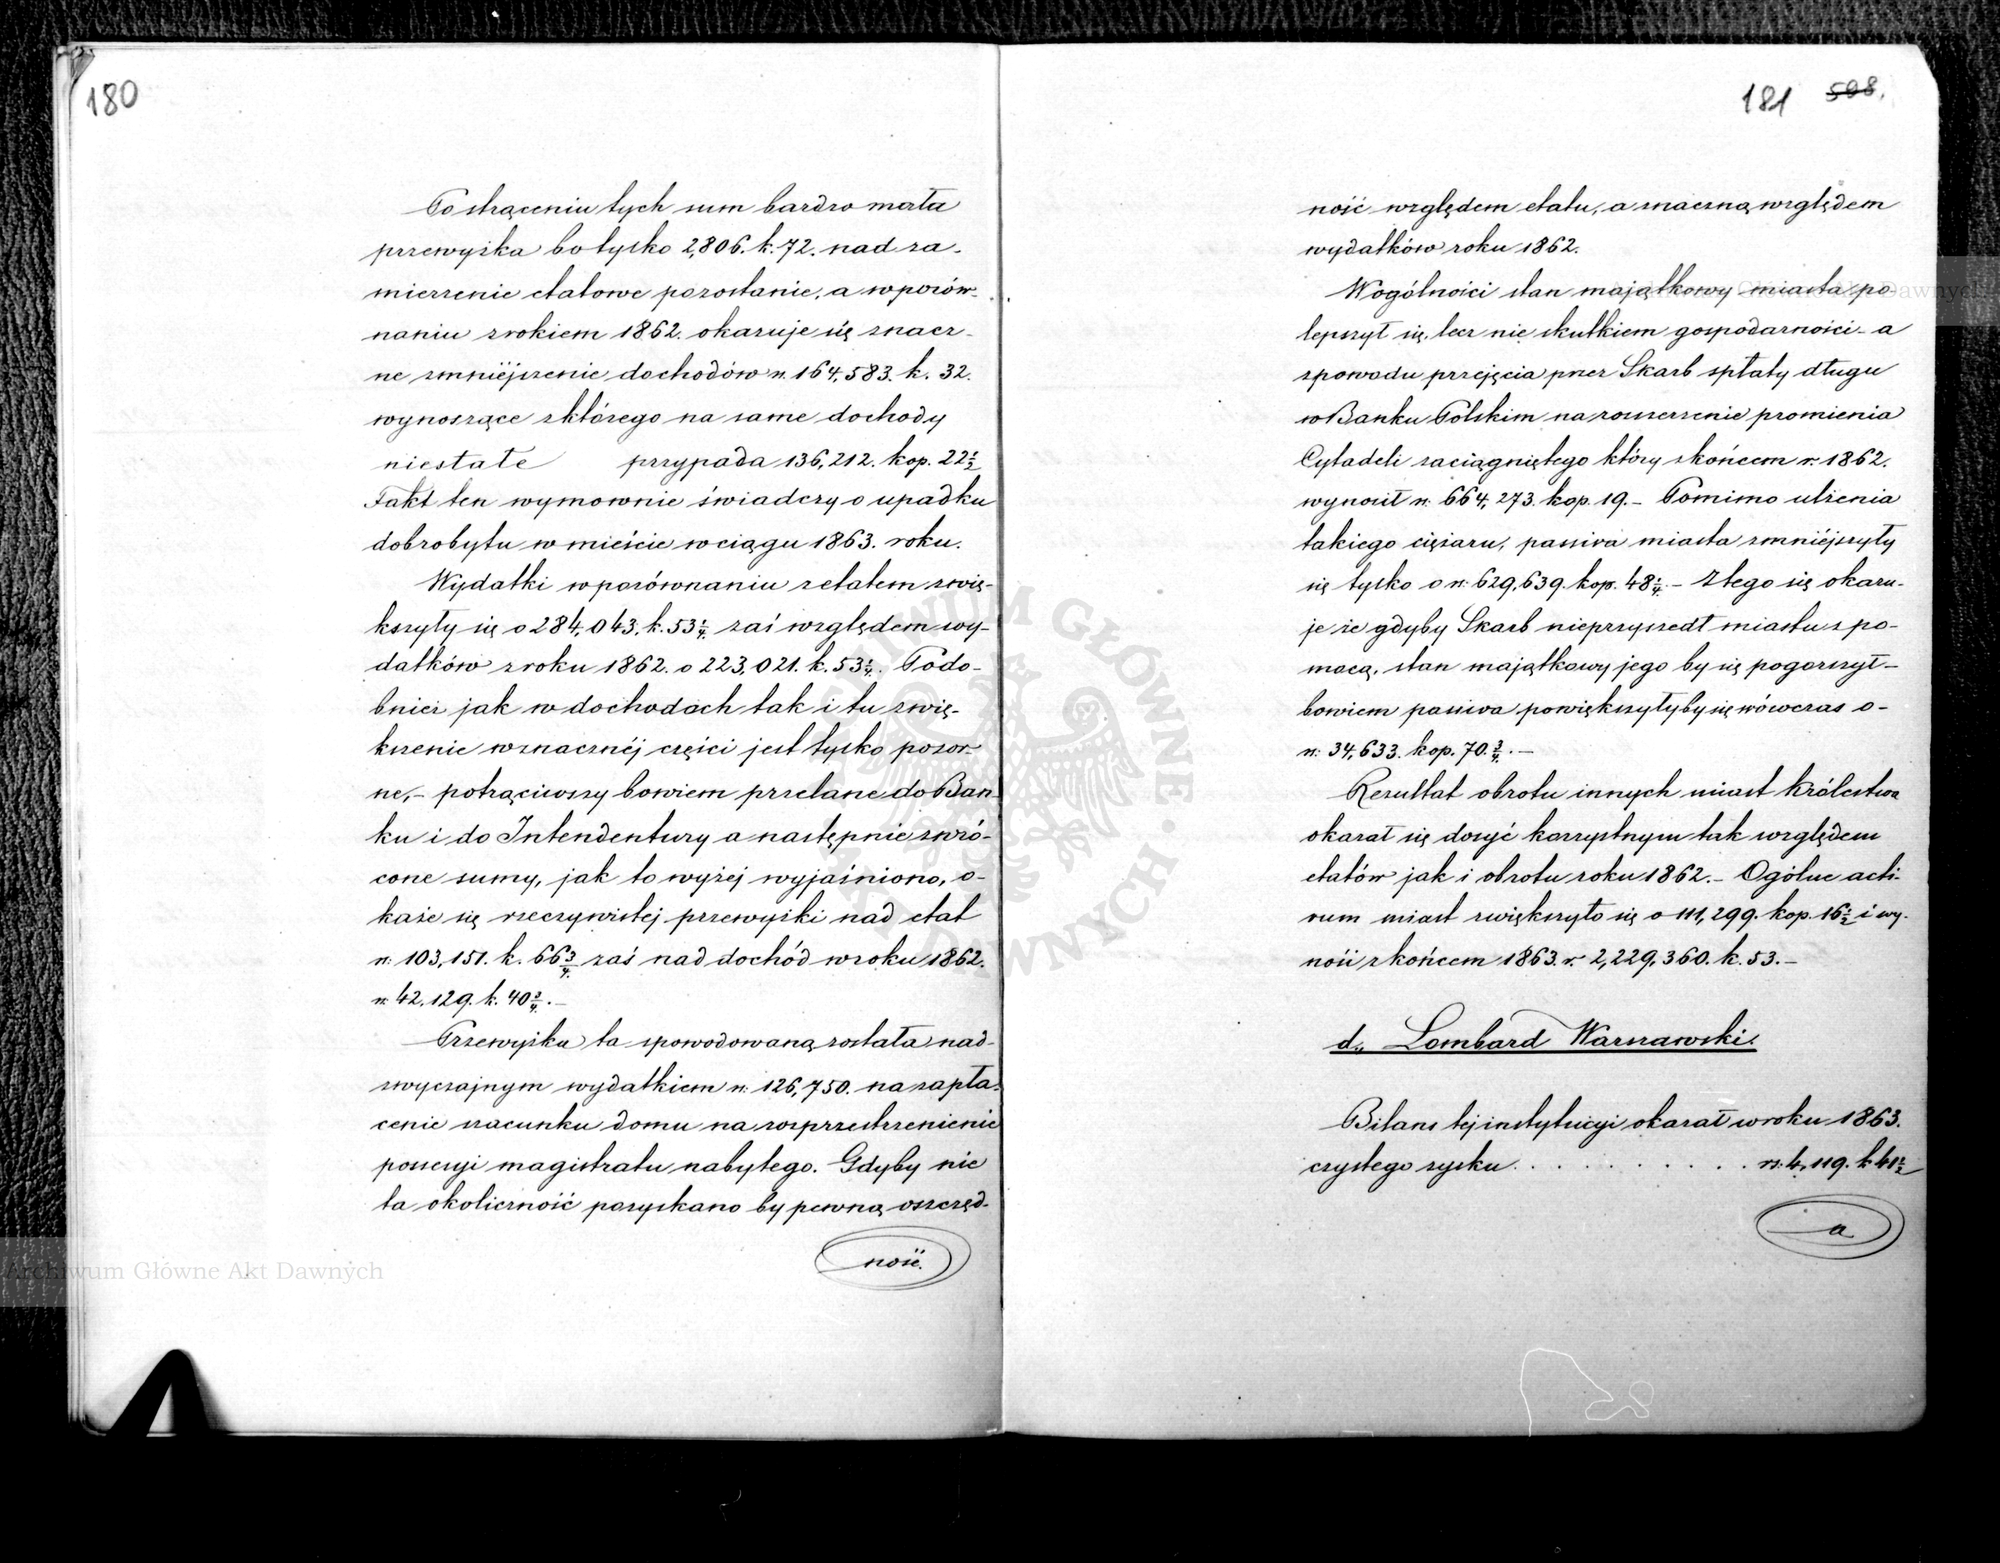 180
Po strąceniu tych sum bardzo mała
przewyżka bo tylko 2,806. k. 72. nad za-
mierzenie etatowe pozostanie, a w porów-
naniu z rokiem 1862. okazuje się znacz-
ne zmniéjszenie dochodów rs. 164,583. k. 32.
wynoszące z którego na same dochody
niestałe przypada 136,212. kop. 22½
Fakt ten wymownie świadczy o upadku
dobrobytu w mieście w ciągu 1863. roku.
Wydatki w porównaniu z etatem zwię-
kszyły się o 284,043. k. 53¼ zaś względem wy-
datków z roku 1862. o 223,021. k. 53¼. Podo-
bnież jak w dochodach tak i tu zwię-
kszenie w znacznéj części jest tylko pozor-
ne,- potrąciwszy bowiem przelane do Ban-
ku i do Intendentury a następnie zwró-
cone sumy, jak to wyżej wyjaśniono, o-
każe się rzeczywistej przewyżki nad etat
rs. 103,151. k. 66¾ zaś nad dochód w roku 1862.
rs. 42,129. k. 40¾.-
Przewyżka ta spowodowaną została nad-
zwyczajnym wydatkiem rs. 126,750. na zapła-
cenie szacunku domu na rozprzestrzenienie
possesyi magistratu nabytego. Gdyby nie
ta okoliczność pozyskano by pewną oszczęd-
ność.
181 598.
ność względem etatu, a znaczną względem
wydatków roku 1862.
Wogólności stan majątkowy miasta po-
lepszył się, lecz nie skutkiem gospodarności a
z powodu przejęcia przez Skarb spłaty długu
w Banku Polskim na rozszerzenie promienia
Cytadeli zaciągniętego który z końcem r. 1862.
wynosił rs. 664,273. kop. 19.- Pomimo ulżenia
takiego ciężaru, passiva miasta zmniéjszyły
się tylko o rs. 629,639. kop. 48¼.- Z tego się okazu-
je że gdyby Skarb nieprzyszedł miastu z po-
mocą, stan majątkowy jego by się pogorszył-
bowiem passiva powiększyłyby się wówczas o-
rs. 34,633. kop. 70.¾.-
Rezultat obrotu innych miast Królestwa
okazał się dosyć korzystnym tak względem
etatów jak i obrotu roku 1862.- Ogólne acti-
vum miast zwiększyło się o 111,299. kop. 16½ i wy-
nosi z końcem 1863. r. 2,229,360. k. 53.-
d., Lombard Warszawski.
Bilans tej instytucyi okazał w roku 1863.
czystego zysku . . . . . . . . . . rs. 4,119. k 41½
a
Archiwum Główne Akt Dawnych
ARCHIWUM GŁÓWNE AKT DAWNYCH